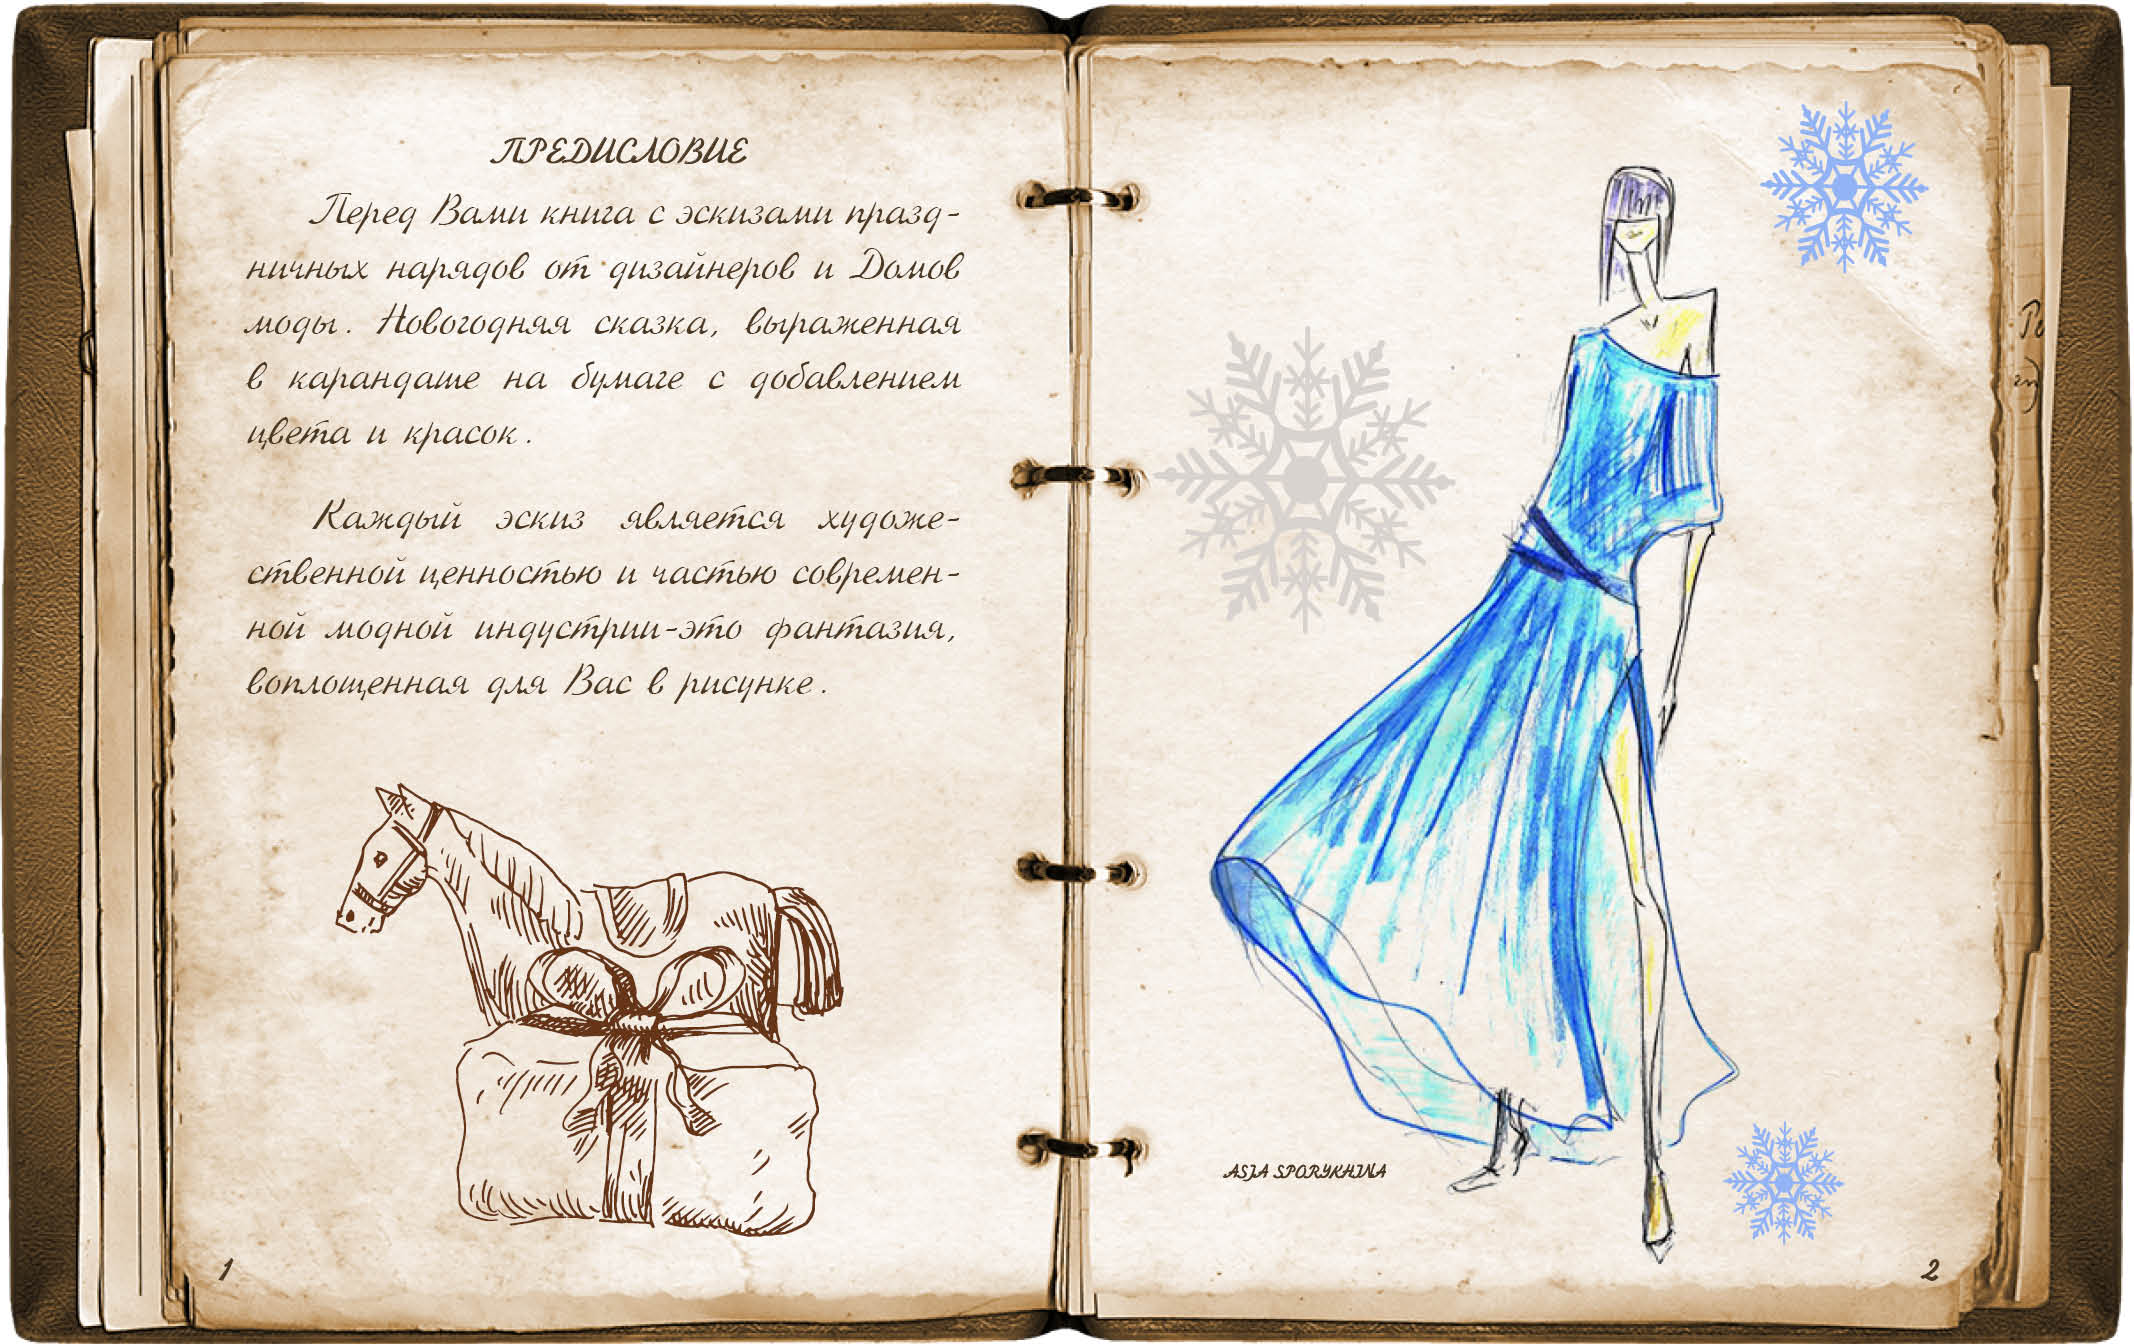 ПРЕДИСЛОВИЕ
Перед Вами книга с эскизами празд-
ничных нарядов от дизайнеров и Домов
моды. Новогодняя сказка, выраженная
в карандаше на бумаге с добавлением
цвета и красок.
Каждый эскиз является художе-
ственной ценностью и частью современ-
ной модной индустрии-это фантазия,
воплощенная для Вас в рисунке.
1
ASIA SPORYKHINA
2